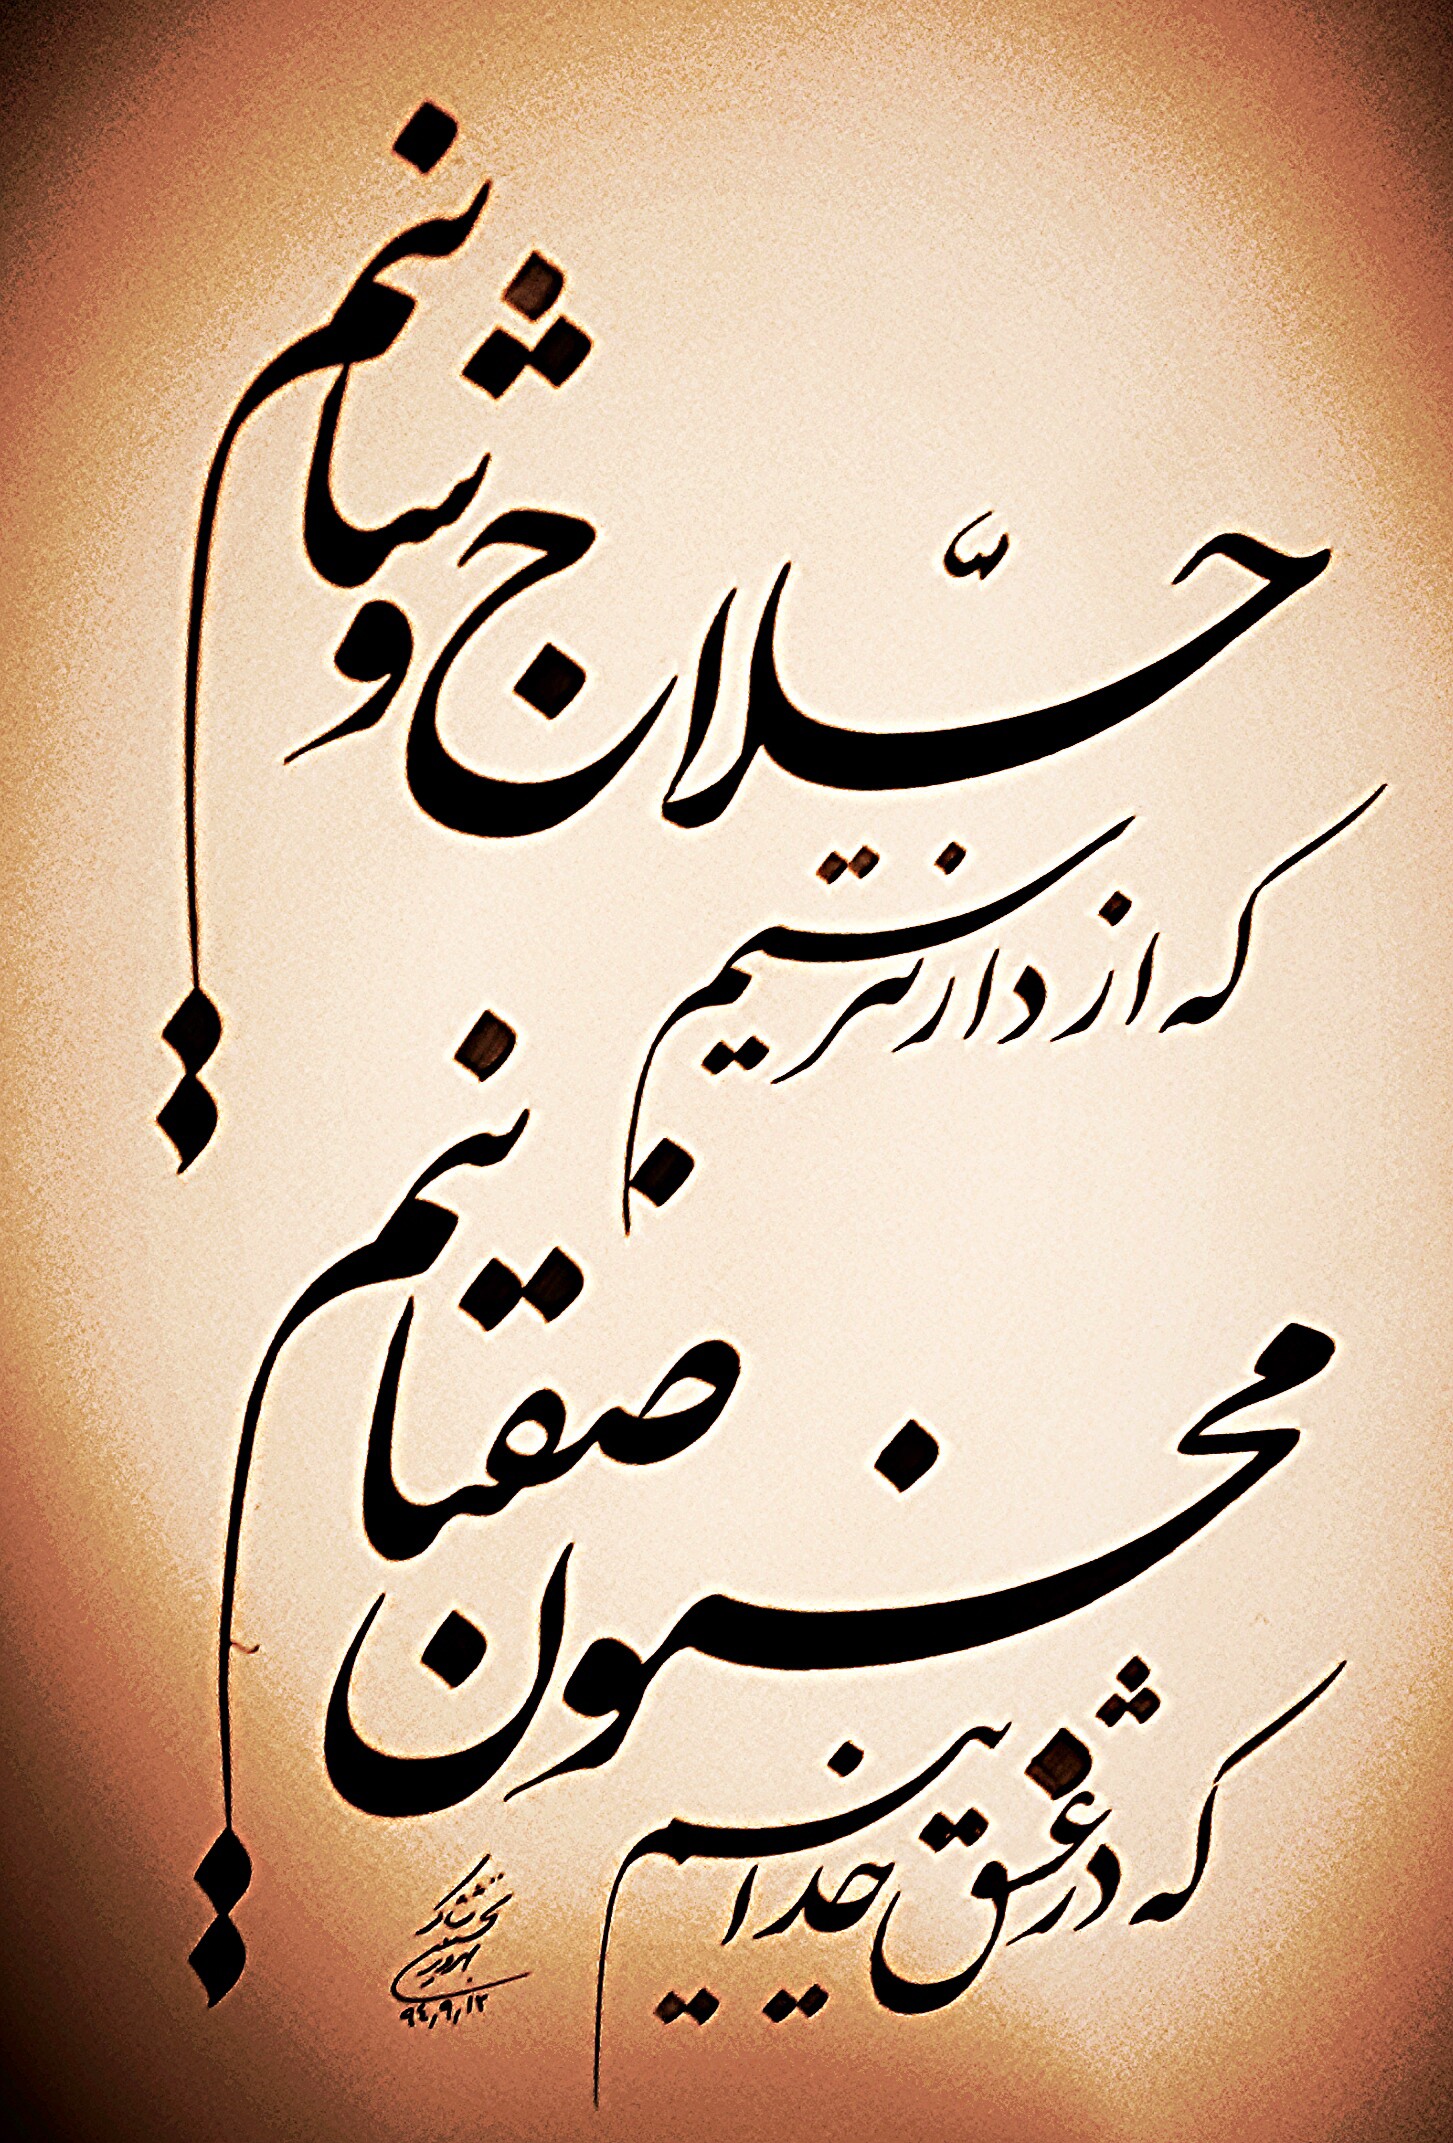 حلّاج وشانیم
که از دار نترسیم
مجنون صفتانیم
که در عشق خداییم
۹۴٫۹٫۱۲